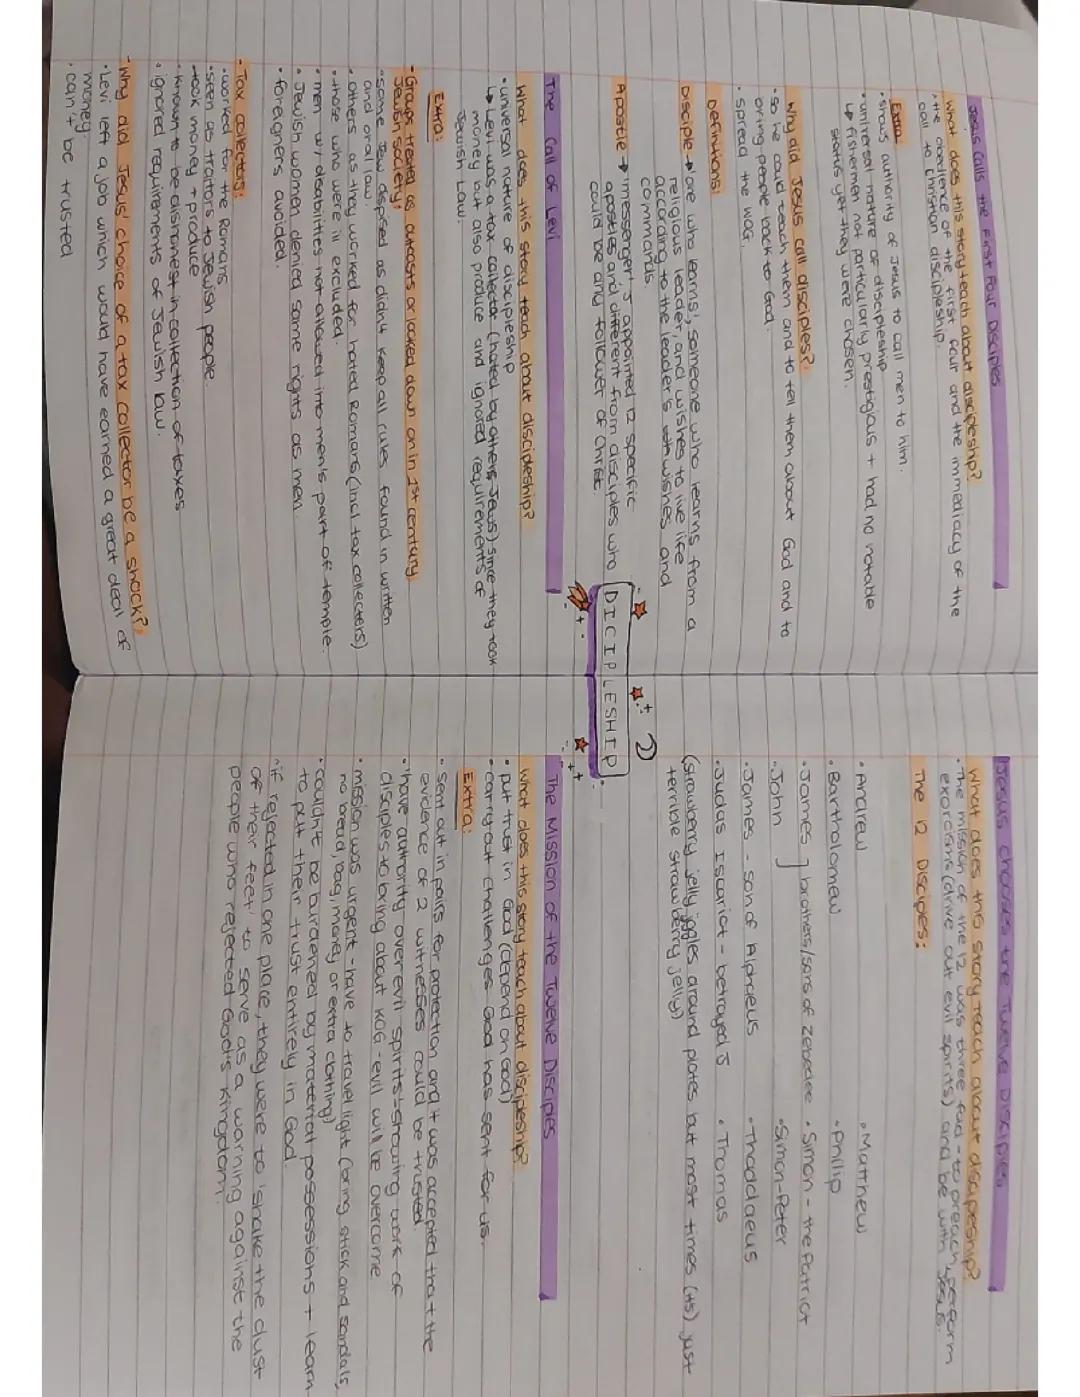 DICIPLESHIP
2
Jesus calls the First Four Disciples
What does this story teach about discipleship?
• the obedience of the first four and the immediacy of the
call to Christian discipleship.
Extra:
• shows authority of Jesus to call men to him.
• universal nature of discipleship
↳ fishermen not particularly prestigious + had no notable
status yet they were chosen.
Why did Jesus call disciples?
• so he could teach them and to tell them about God and to
bring people back to God.
• spread the WOG.
Definitions:
Disciple → 'one who learns', someone who learns from a
religious leader, and wishes to live life
according to the leader's wishes and
commands.
Apostle → 'messenger', J appointed 12 specific
apostles and different from disciples who
could be any follower of Christ.
The Call of Levi
What does this story teach about discipleship?
• universal nature of discipleship
↳ Levi was a tax collector (hated by others Jews) since they took
money but also produce and ignored requirements of
Jewish Law.
Extra:
- Groups treated as outcasts or looked down on in 1st century
Jewish society:
• some Jew despised as didn't keep all rules found in written
and oral law.
• others as they worked for hated Romans (incl tax collecters)
• those who were ill excluded.
• men w/ disabilities not allowed into men's part of temple.
• Jewish women denied same rights as men.
• foreigners avoided.
- Tax collectors:
• worked for the Romans
• seen as traitors to Jewish people.
• took money + produce
• known to be dishonest in collection of taxes
• ignored requirements of Jewish law.
- Why did Jesus' choice of a tax collector be a shock?:
• Levi left a job which would have earned a great deal of
money.
• can't be trusted
Jesus chooses the Twelve Disciples
What does this story teach about discipleship?
• The mission of the 12 was three fold - to preach, perform
exorcisms (drive out evil spirits) and be with Jesus.
The 12 Disciples:
• Andrew • Matthew
• Bartholomew • Philip
• James ] brothers/sons of Zebedee • Simon - the Patriot
• John • Simon-Peter
• James - son of Alphaeus • Thaddaeus
• Judas Iscariot - betrayed J • Thomas
(strawberry jelly jiggles around plates but most times (ms) just
terrible strawberry jelly)
The Mission of the Twelve Disciples
What does this story teach about discipleship?
• put trust in God (depend on God)
• carry out challenges God has sent for us.
Extra:
• sent out in pairs for protection and it was accepted that the
evidence of 2 witnesses could be trusted.
• 'have authority over evil spirits' - showing work of
disciples to bring about KOG - evil will be overcome
• mission was urgent - have to travel light (bring stick and sandals,
no bread, bag, money or extra clothing)
• couldn't be burdened by material possessions + learn
to put their trust entirely in God.
• if rejected in one place, they were to 'shake the dust
of their feet' to serve as a warning against the
people who rejected God's Kingdom.